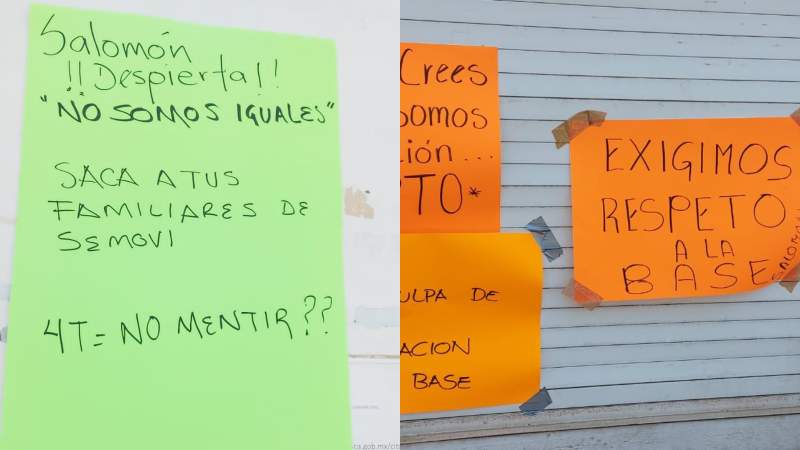 Salomón
!!Despierta!!
"NO SOMOS IGUALES"
SACA A TUS
FAMILIARES DE
SEMOVI
4T = NO MENTIR??
Crees
SOMOS
ción...
TO*
EXIGIMOS
RESPETO
A LA
BASE
SALOMÓN
ULPA DE
ACION
BASE
ca.gob.mx/ci